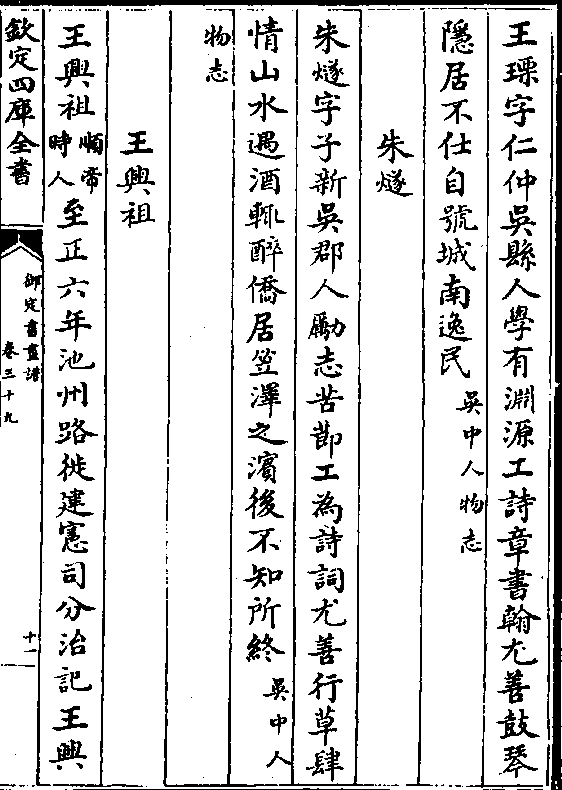 王璟字仁仲吳縣人學有淵源工詩章書翰尤善鼓琴
隱居不仕自號城南逸民吳中人物志
朱燧
朱燧字子新吳郡人勵志苦節工為詩詞尤善行草肆
情山水遇酒輒醉僑居笠澤之濱後不知所終吳中人
物志
王興祖
王興祖順帝時人至正六年池州路徙建憲司分治記王興
欽定四庫全書
御定書畫譜
卷三十九
十一